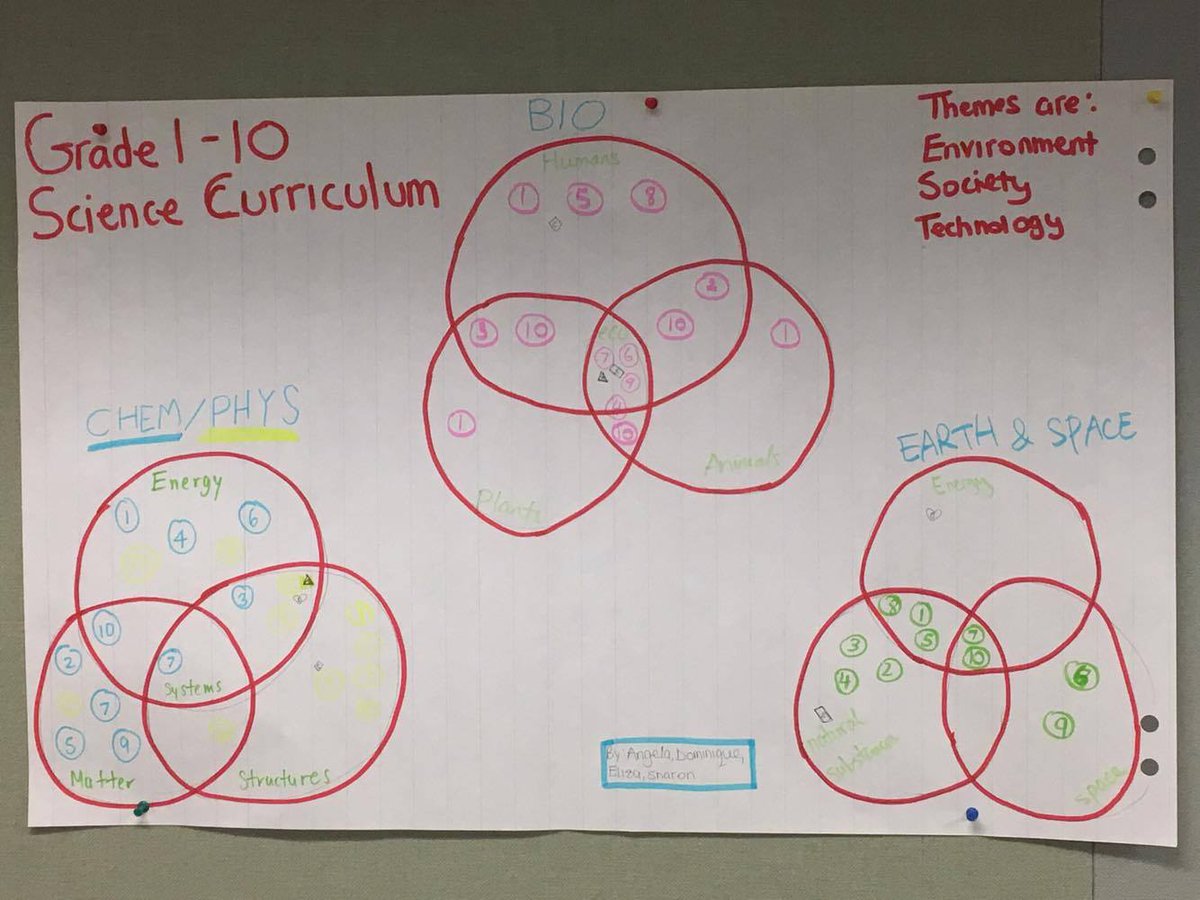 Grade 1-10
Science Curriculum
Themes are:
Environment
Society
Technology
BIO
Humans
1 5 8
3 10
10 2
1
eco
7 6
9
4
10
1
Plants
Animals
CHEM/PHYS
Energy
1 4 6
3
10
2
7
Systems
7
5 9
Matter
Structures
EARTH & SPACE
Energy
8 1
5
7
10
3
4 2
6
9
natural
space
By Angela, Dominique,
Eliza, Sharon